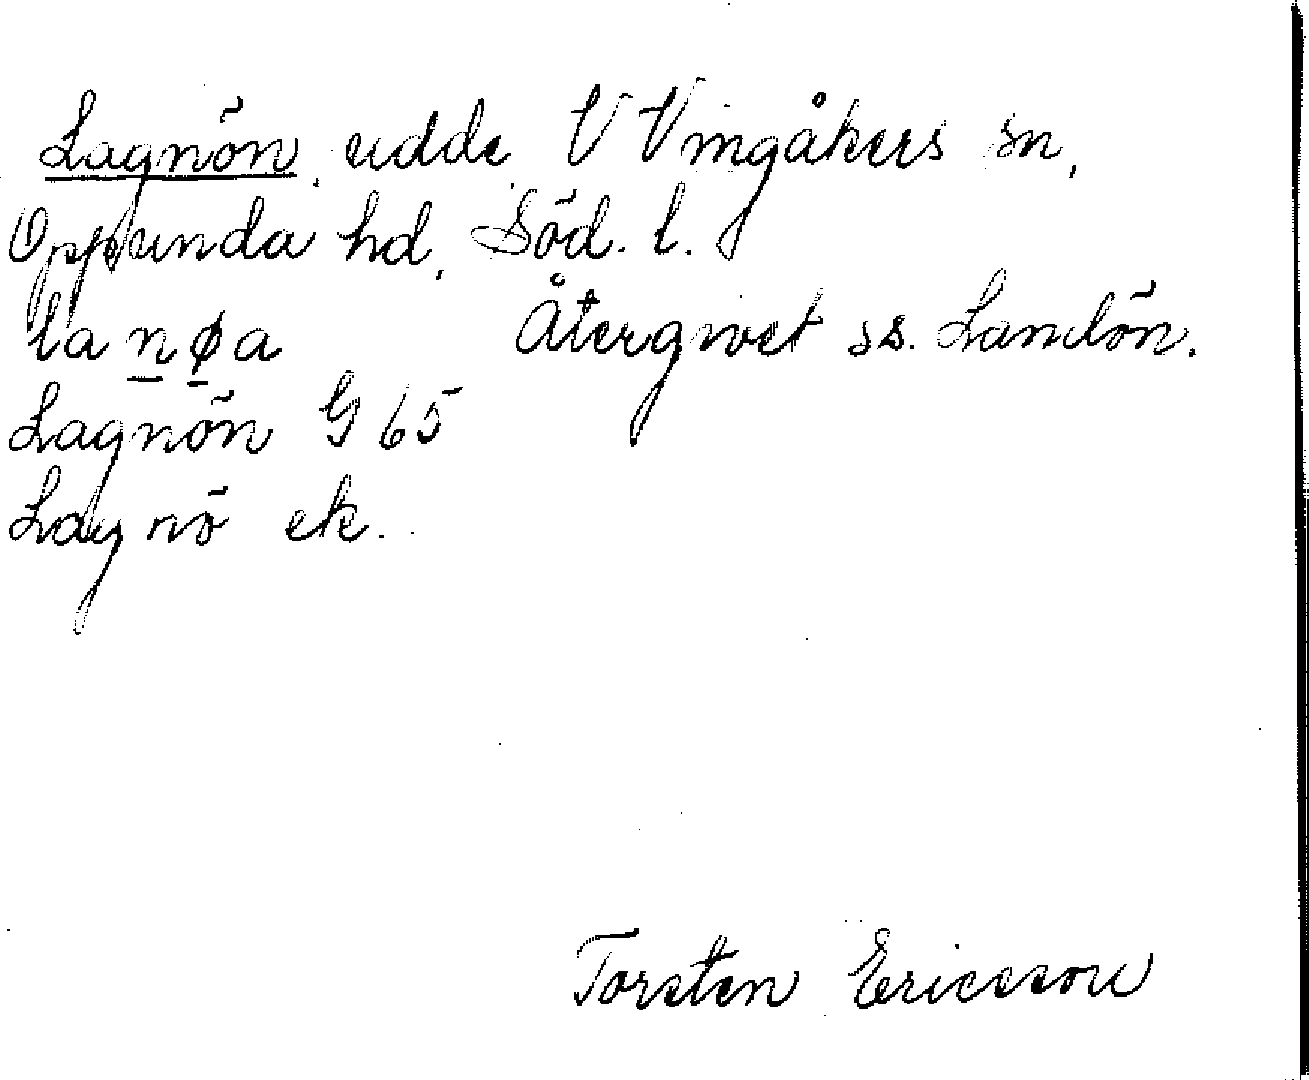 Lagnön, udde, V Vingåkers sn,
Oppunda hd, Söd. l.
lanøa Återgivet ss. Landön.
Lagnön G 65
Lagnö ek.
Torsten Ericsson